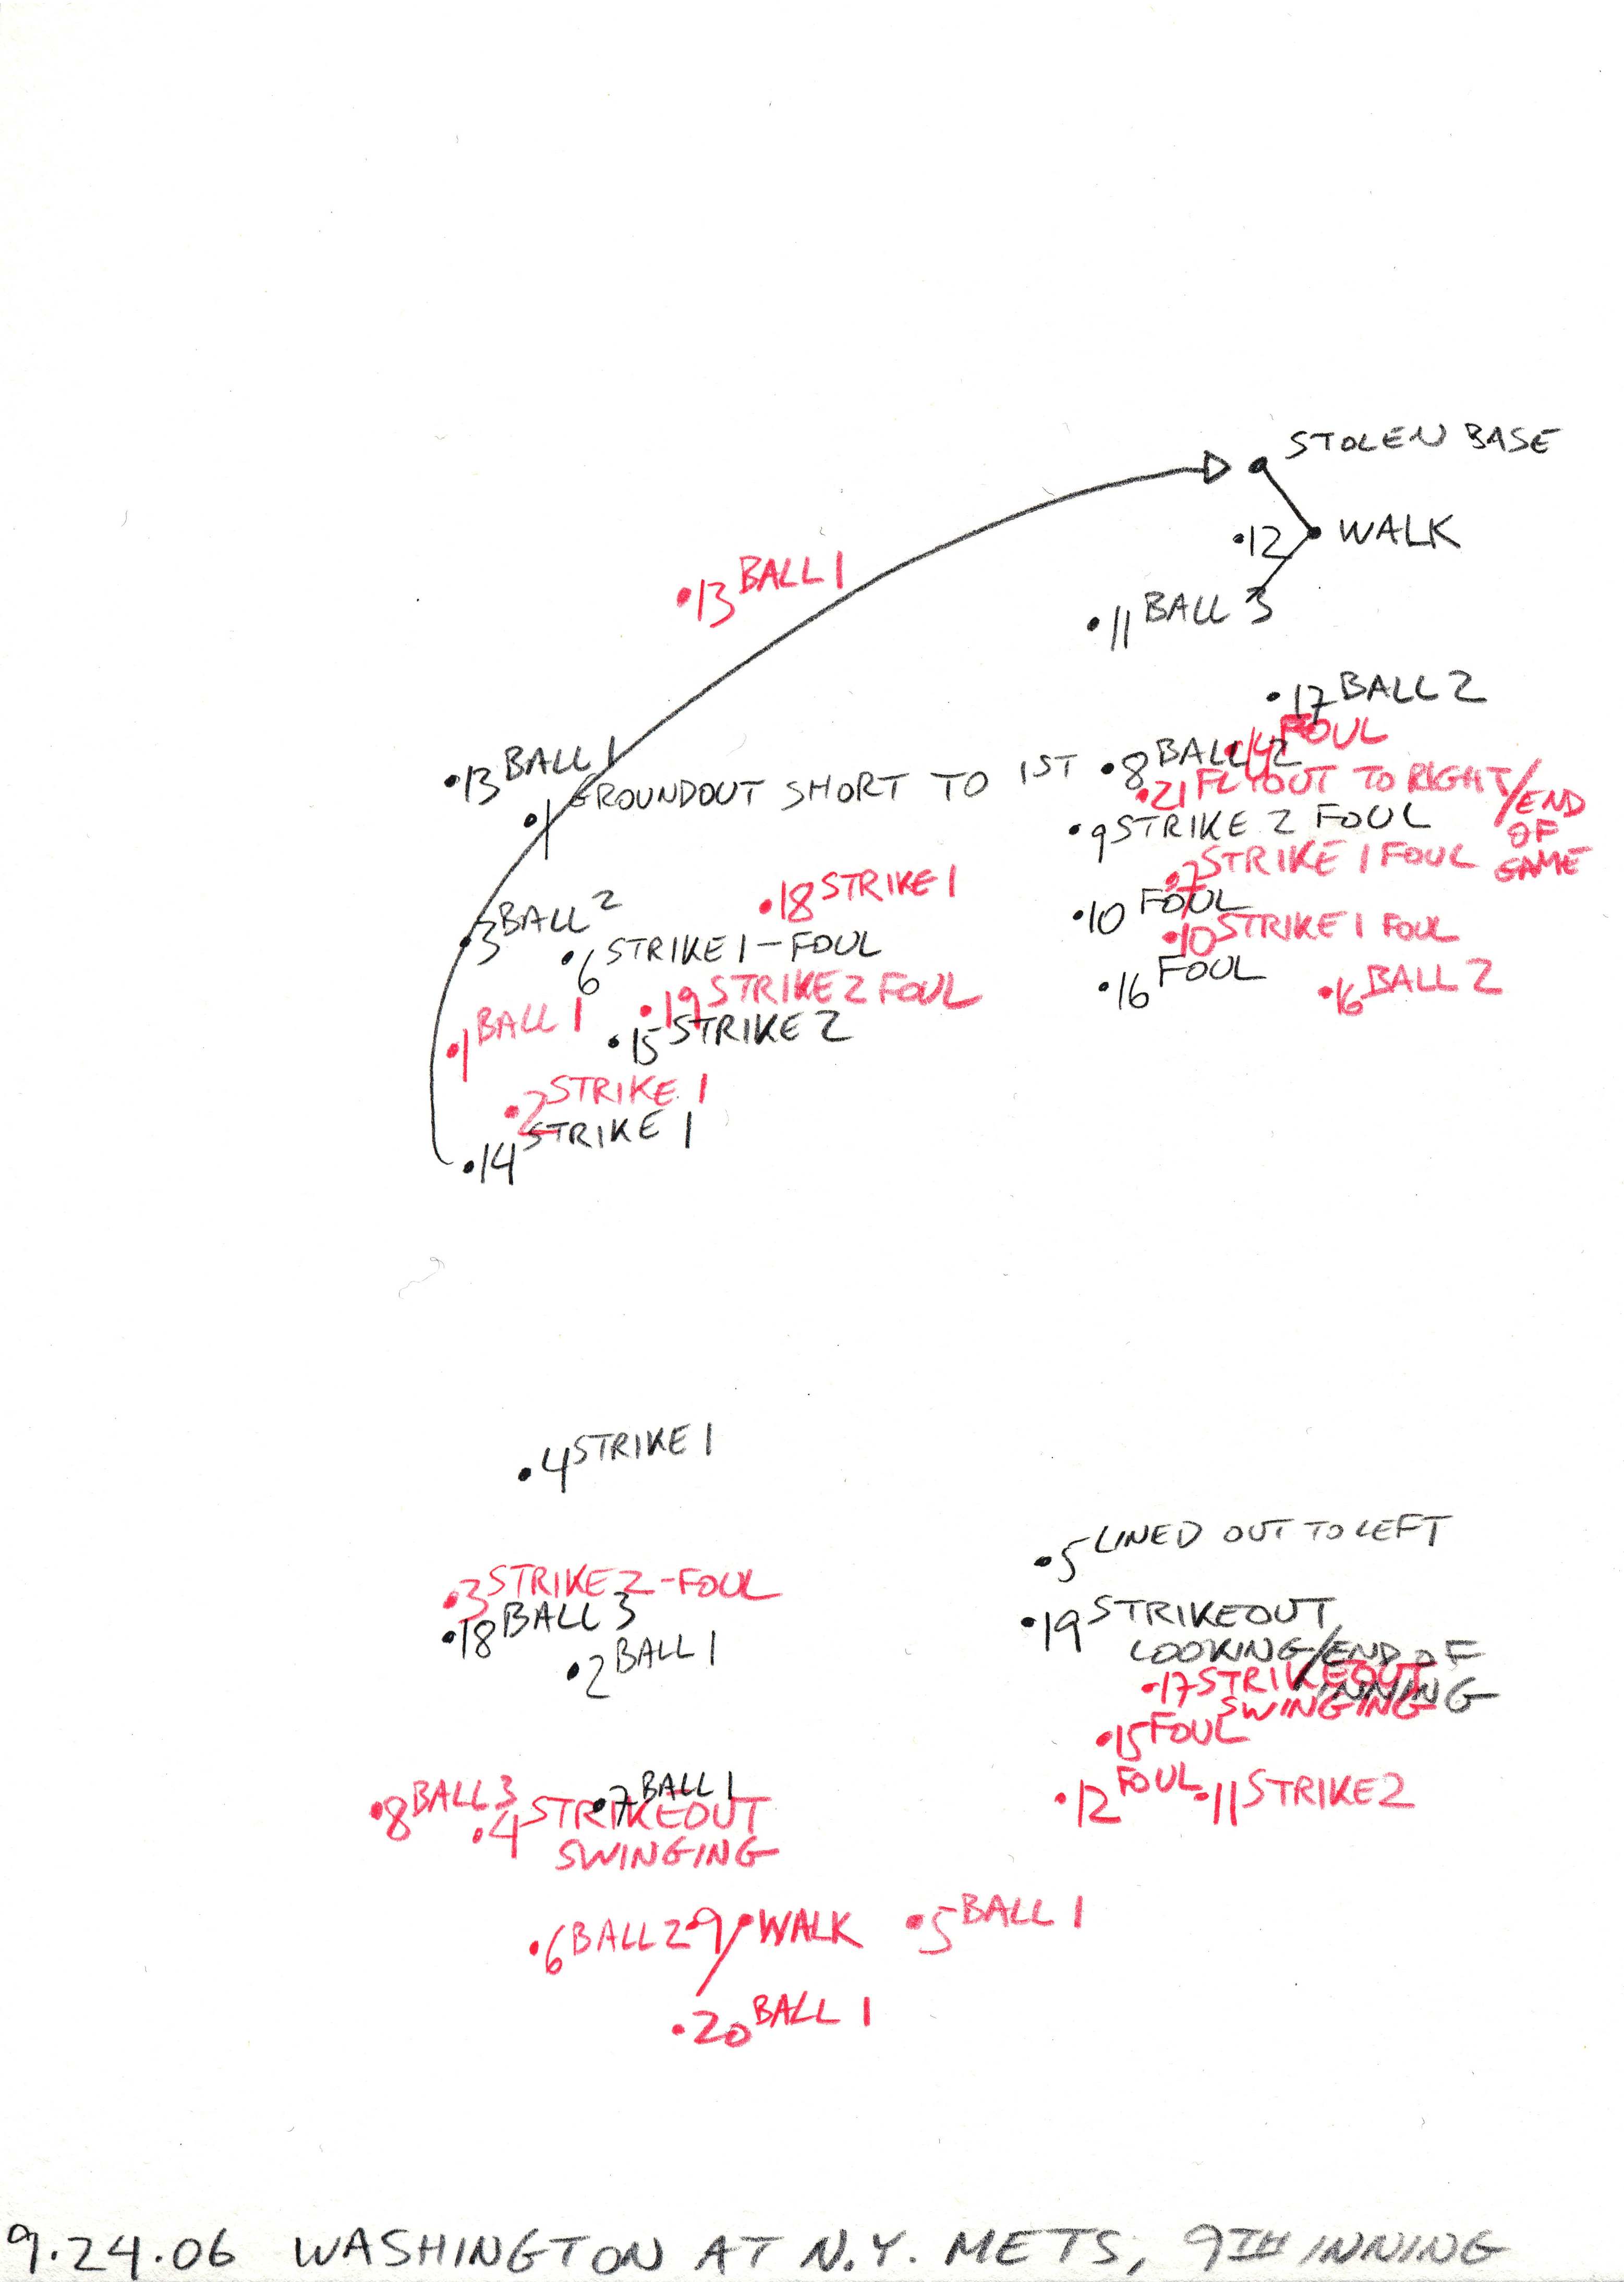 STOLEN BASE
•12 WALK
•13 BALL 1
•11 BALL 3
•17 BALL 2
•14 FOUL
•13 BALL 1
•8 BALL 2
•1 GROUNDOUT SHORT TO 1ST
•21 FLYOUT TO RIGHT/END
OF
GAME
•9 STRIKE 2 FOUL
•7 STRIKE 1 FOUL
•18 STRIKE 1
•3 BALL 2
•10 FOUL
•6 STRIKE 1-FOUL
•10 STRIKE 1 FOUL
•19 STRIKE 2 FOUL
•16 FOUL
•16 BALL 2
•1 BALL 1
•15 STRIKE 2
•2 STRIKE 1
•14 STRIKE 1
•4 STRIKE 1
•5 LINED OUT TO LEFT
•3 STRIKE 2-FOUL
•18 BALL 3
•19 STRIKEOUT
LOOKING/END OF
INNING
•2 BALL 1
•17 STRIKEOUT
SWINGING
•15 FOUL
•7 BALL 1
•8 BALL 3
•4 STRIKEOUT
SWINGING
•12 FOUL
•11 STRIKE 2
•6 BALL 2
•9 WALK
•5 BALL 1
•20 BALL 1
9.24.06 WASHINGTON AT N.Y. METS, 9TH INNING